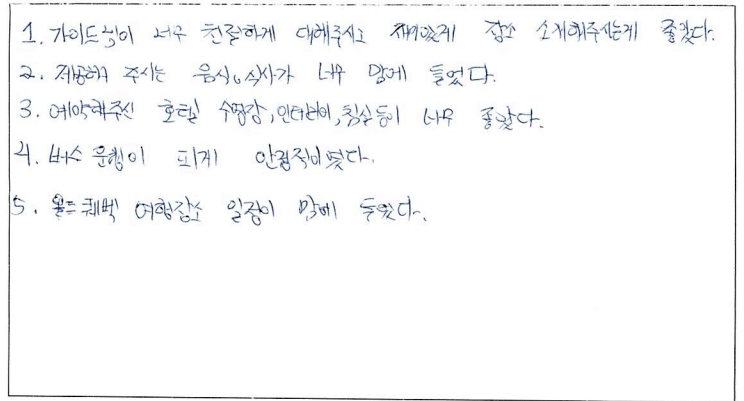 1. 가이드님이 너무 친절하게 대해주시고 재미있게 장소 소개해주시는게 좋았다.
2. 제공해 주시는 음식, 식사가 너무 맘에 들었다.
3. 예약해주신 호텔 수영장, 인테리어, 침실등이 너무 좋았다.
4. 버스 운행이 되게 안정적이였다.
5. 올드퀘벡 여행장소 일정이 맘에 들었다.